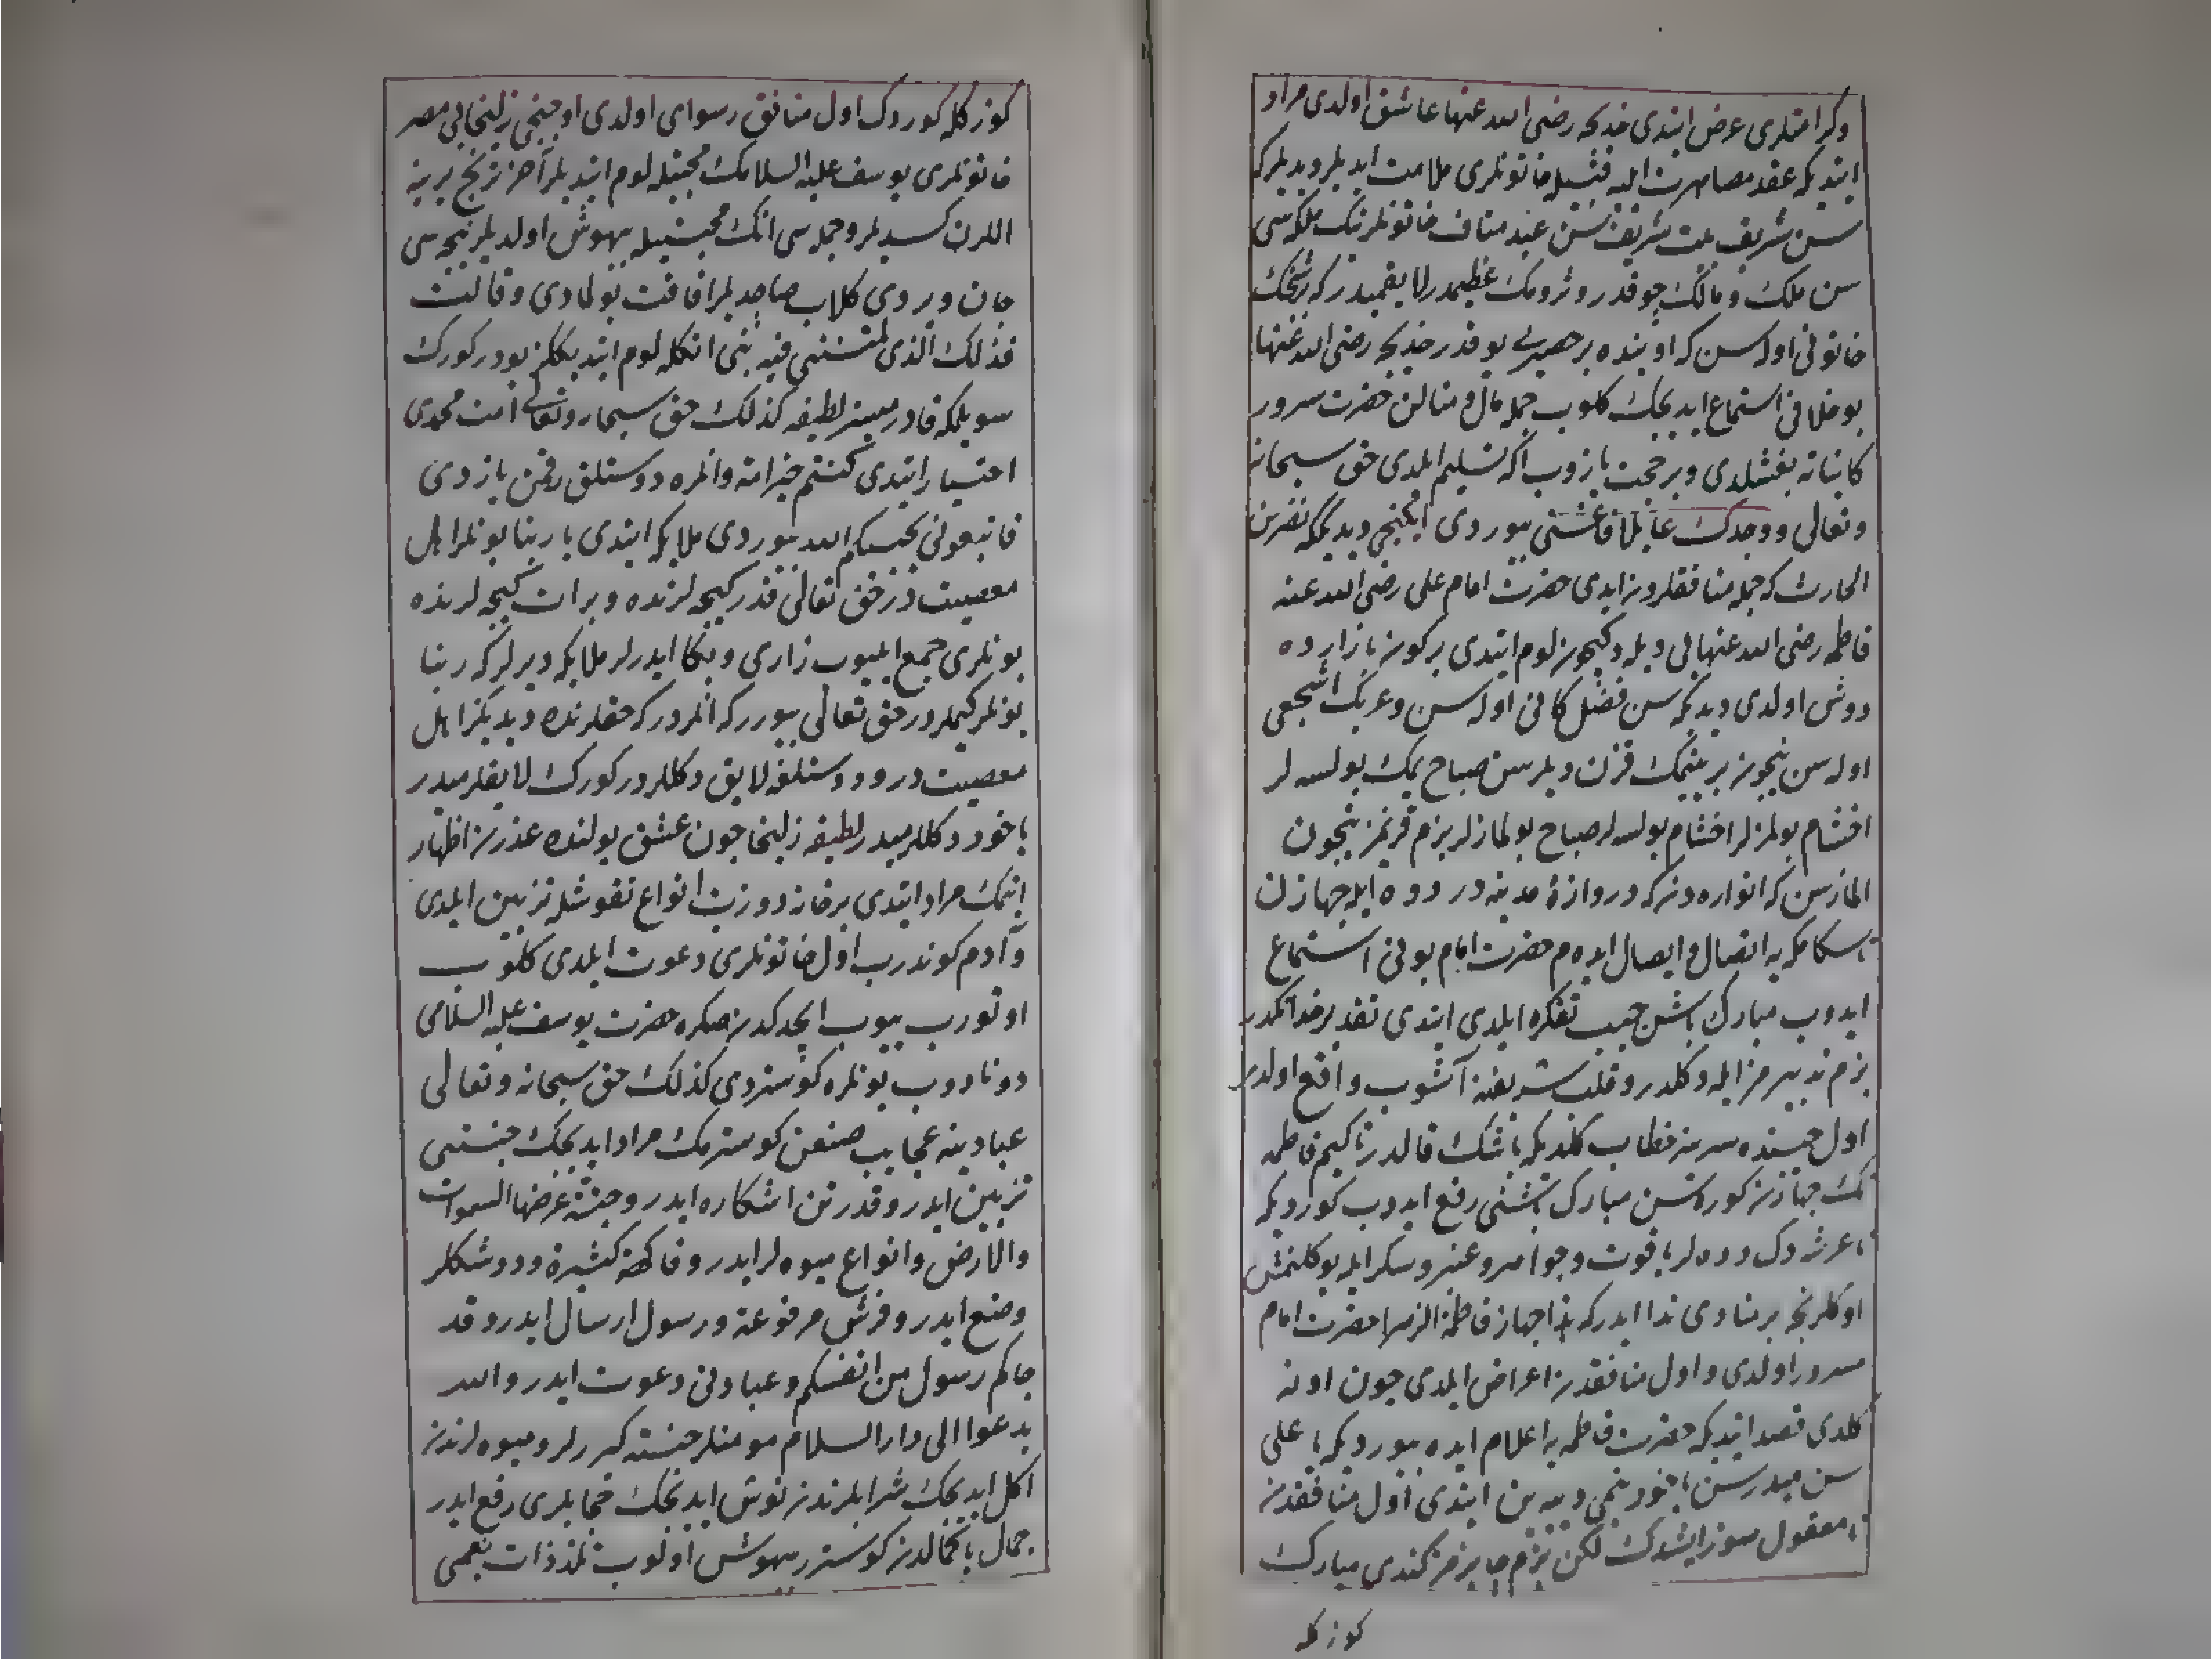 وكرامتلری عرض ایتدی خدیجه رضی الله عنها عاشق اولدی مراد
ایتدیكه عقد مصاهرت ایله قتیله خاتونلری ملامت ایدیلر ودیدیلركه
سن شریف بنت شریف سن عبد مناف خاتونلرنك ملكه سی
سن ملك و مالك چوقدر وثرومك عظیمدر لایقمیدر كه شخك
خاتونی اوله سن كه اونده بر حصیری یوقدر خدیجه رضی الله عنها
بو خلافی استماع ایدیجك كلوب جمله مال و منالن حضرت سرور
كایناته بغشلدی وبر حجت یازوب اكا تسلیم ایلدی حق سبحانه
وتعالی ووجدك عائلا فاغنی بیوردی ایكنجی دیدیكه نضر بن
الحارث كه جمله منافقلردنر ایدی حضرت امام علی رضی الله عنه
فاطمه رضی الله عنهایی دیله دكیچون لوم ایتدی بر كون بازارده
دوش اولدی دیدیكه سن فضل كانی اوله سن وعربك اشجعی
اوله سن نیچون بر یتیمك قزن دیلرسن صباح یمك بولسه لر
اخشام بولمزلر اخشام بولسه لر صباح بولمازلر بزم قزیمز نیچون
المازسن كه انواره دنركه دروازۀ مدینه در دوه ایله جهازن
سكا مكریه اتصال و ایصال ایده م حضرت امام بونی استماع
ایدوب مبارك باشن جیب تفكره ایلدی ایتدی تقدیر خدانكدر
بزم تدبیرمز ایله دكلدر و قلب شریفنه آشوب واقع اولدی
اول حینده سرینه خطاب كلدیكه باشك قالدر تا كیم فاطمه
نك جهازن كوره سن مبارك باشنی رفع ایدوب كوردیكه
عرشدك دوه لر یاقوت وجواهر وعنبر وسكر ایله یوكلنمش
اوكلرنجه بر منادی ندا ایدركه هذا جهاز فاطمة الزهرا حضرت امام
مسرور اولدی و اول منافقدن اعراض ایلدی چون اونه
كلدی قصد ایتدیكه حضرت فاطمه یه اعلام ایده بیوردیكه یا علی
سن میدرسن یا خود بنمی دیه ین ایتدی اول منافقدن
نامعقول سوز ایشتدك لكن بزم جابزمز كندی مبارك
كوزكله
كوزكله كوردك اول منافق رسوای اولدی اوچنجی زلیخایی مصر
خاتونلری یوسف علیه السلامك محبتیله لوم ایتدیلر آخر ترنج یرینه
اللرن كسدیلر وجمله سی انك محبتیله بیهوش اولدیلر نیجه سی
جان ویردی كلاب صاچدیلر افاقت بولمادی وقالت
فذلك الذی لمتننی فیه بنی انكله لوم ایتدیككز بودر كورك
سویلمكه قادرمیسز لطیفه كذلك حق سبحانه وتعالی امت محمدی
اختیار ایتدی كنتم خیر امة وانلره دوستلق رقمن یازدی
فاتبعونی یحببكم الله بیوردی ملایكه ایتدی یا ربنا بونلر اهل
معصیت در حق تعالی قدر كیجه لرنده و برات كیجه لرنده
بونلری جمع ایلیوب زاری و بكا ایدرلر ملایكه دیرلر كه ربنا
بونلر كیملردر حق تعالی بیورر كه انلردر كه حقلرنده دیدیكز اهل
معصیت در ودوستلغه لایق دكللردر كورك لایقلرمیدر
یا خود دكللرمیدر لطیفه زلیخا چون عشق یولنده عذرن اظهار
ایتمك مراد ایتدی بر خانه دوزن انواع نقوشله تزیین ایلدی
و آدم كوندرب اول خاتونلری دعوت ایلدی كلوب
اوتورب ییوب ایچدكدن صكره حضرت یوسف علیه السلامی
دوناردوب بونلره كوستردی كذلك حق سبحانه وتعالی
عبادینه عجایب صنعن كوسترمك مراد ایدیجك جنتی
تزیین ایدر وقدرتن اشكاره ایدر وجنة عرضها السموات
والارض وانواع میوه لر ایدر وفاكهة كثیرة ودوشكلر
وضع ایدر وفرش مرفوعة ورسول ارسال ایدر وقد
جاكم رسول من انفسكم وعبادنی دعوت ایدر والله
یدعوا الی دار السلام مومنلر جنته كیررلر ومیوه لرندن
اكل ایدیجك شرابلرندن نوش ایدیجك حجابلری رفع ایدر
جمال باكمالدن كوستر بیهوش اولوب تلذذات نعمی